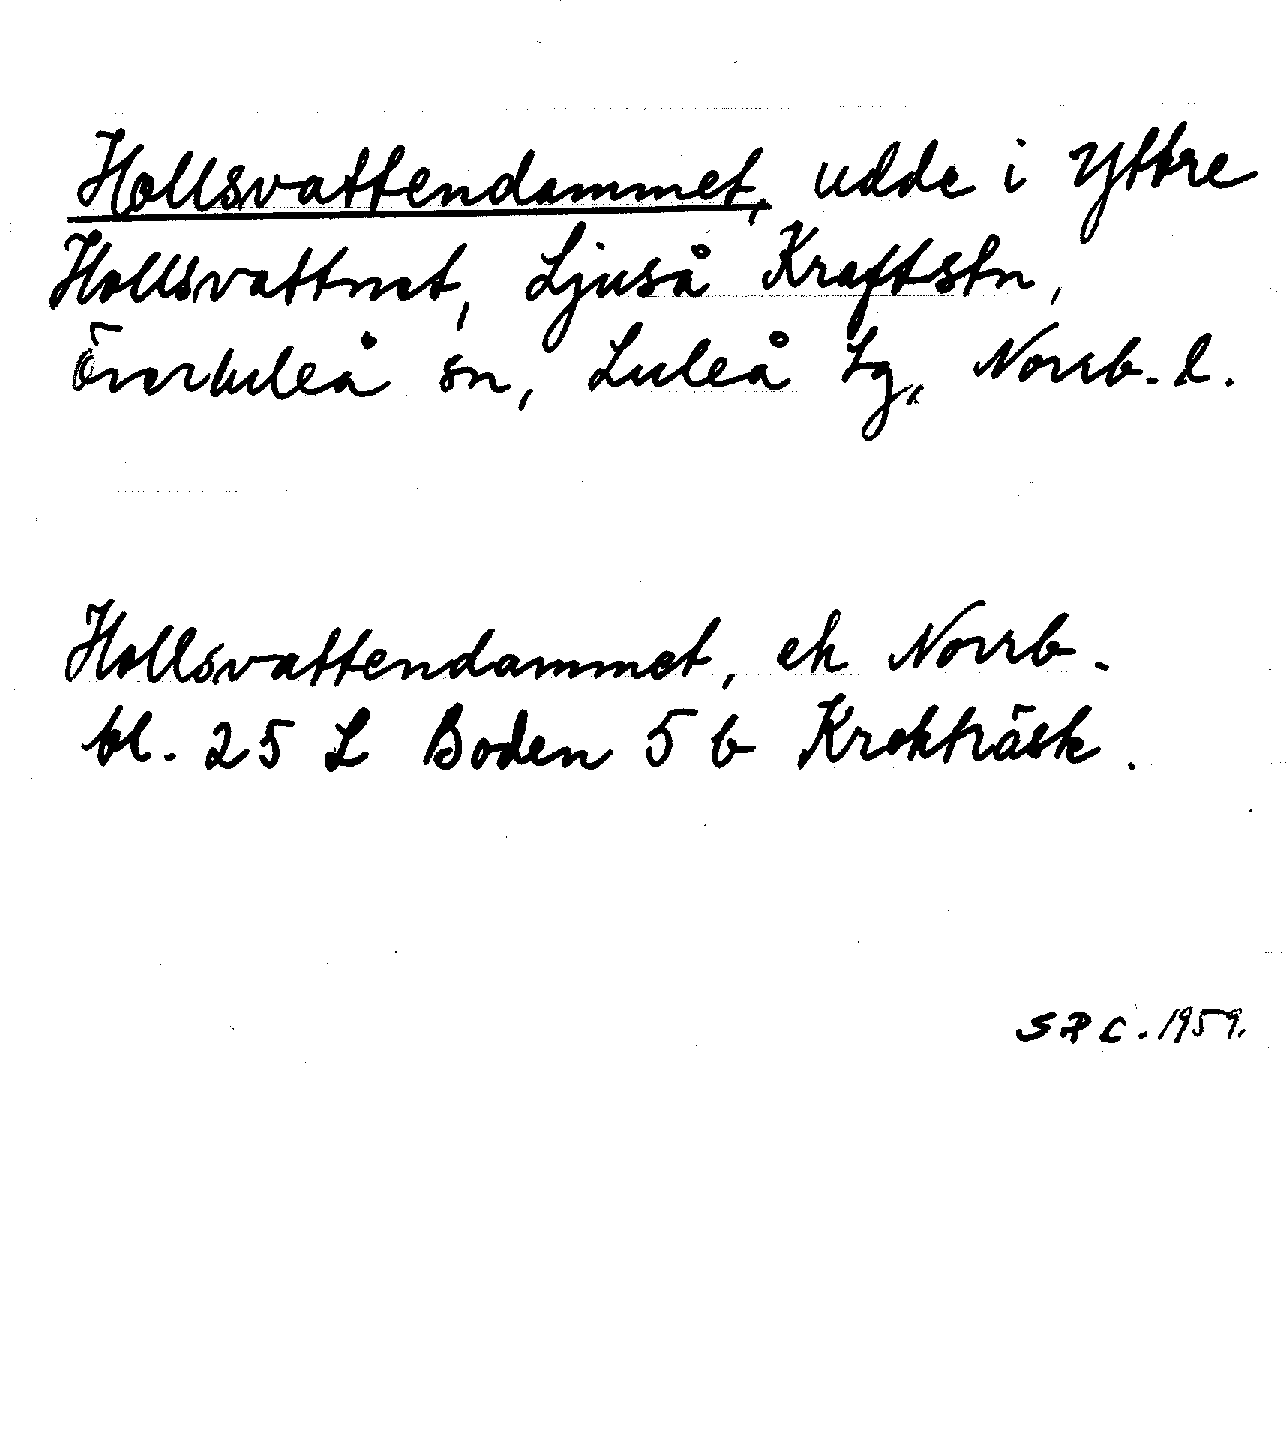 Hollsvattendammet, udde i Yttre
Hollsvattnet, Ljuså Kraftstn,
Överluleå sn, Luleå tg, Norrb. l.
Hollsvattendammet, ek Norrb.
bl. 25 L Boden 5 b Krokträsk.
SRC. 1959.